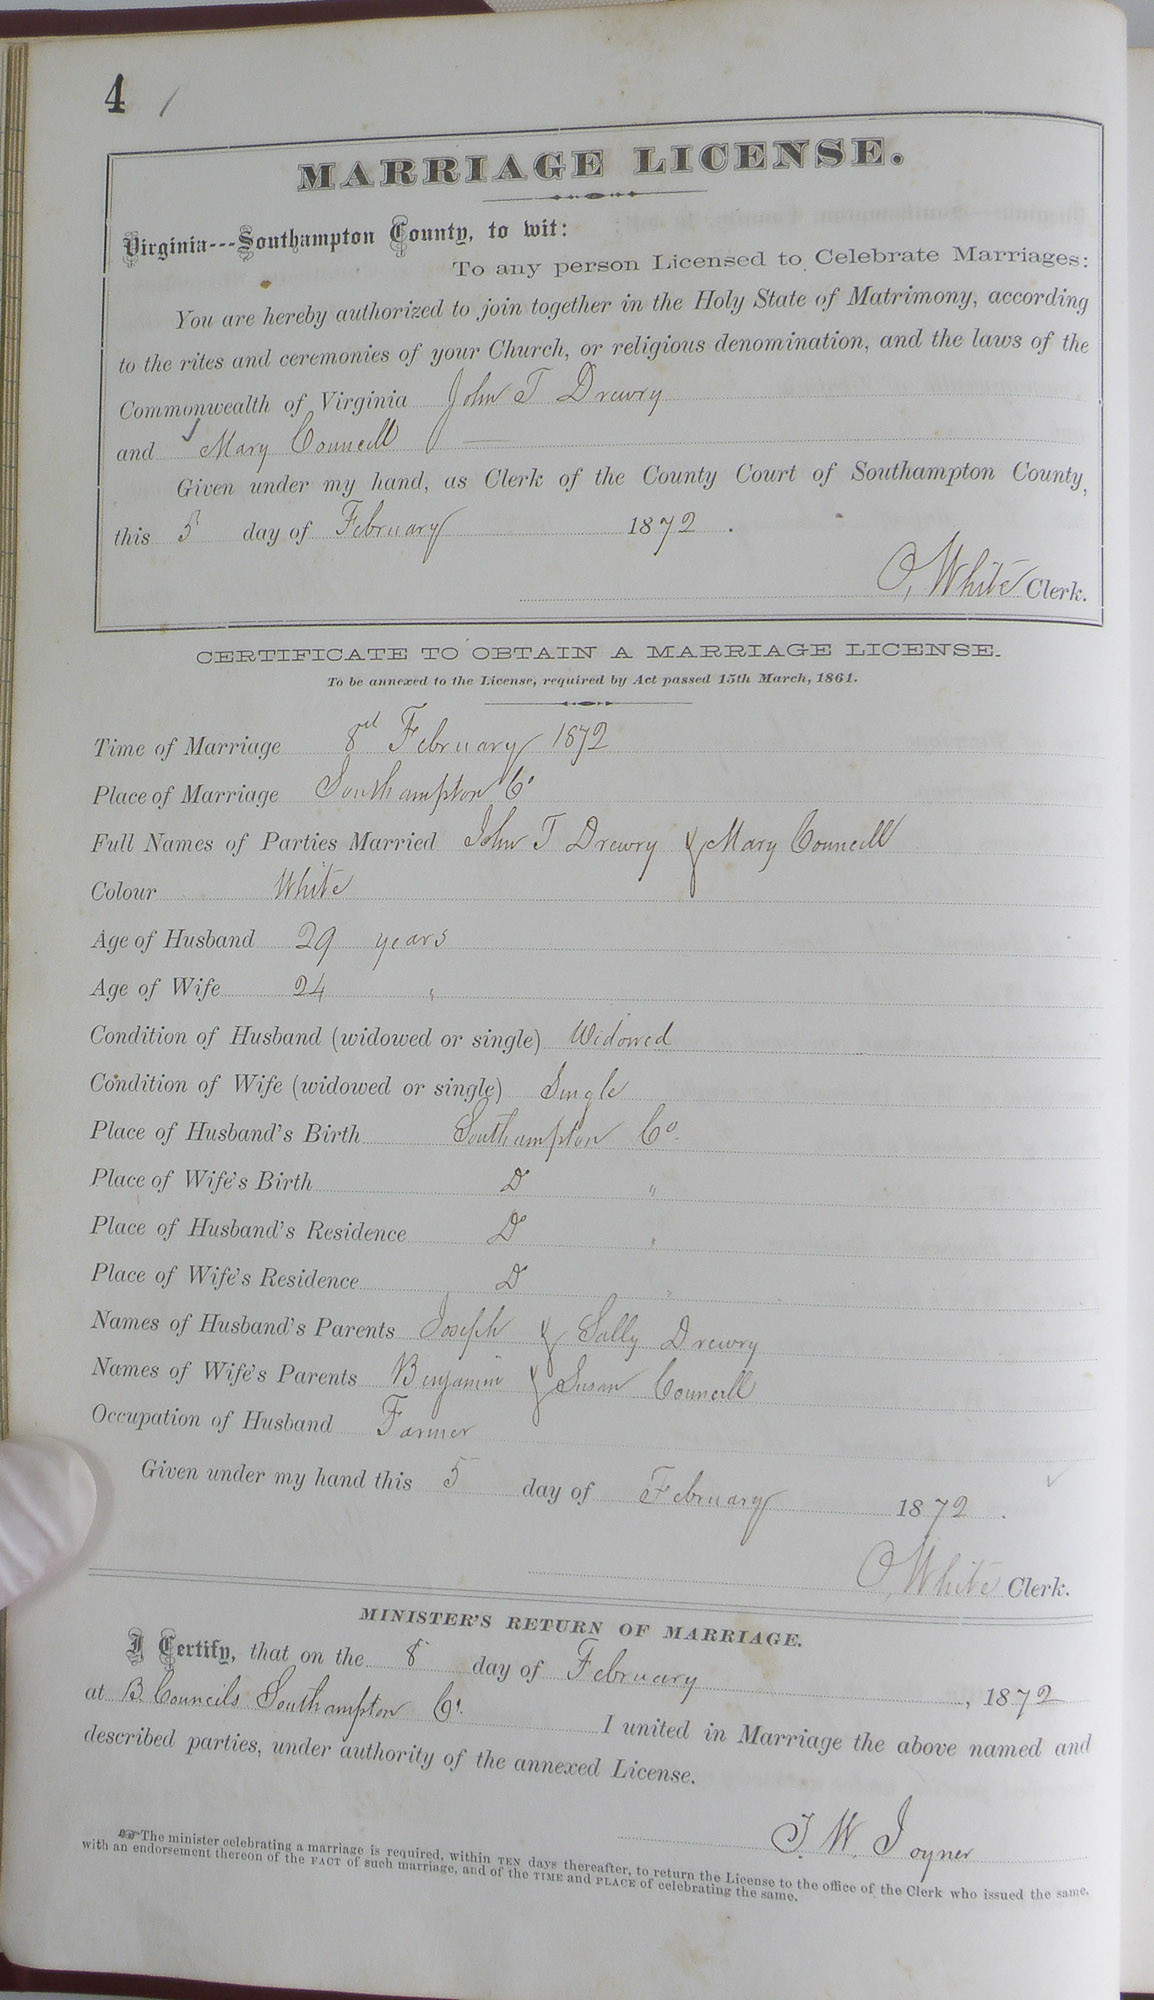 4
MARRIAGE LICENSE.
Virginia---Southampton County, to wit:
To any person Licensed to Celebrate Marriages:
You are hereby authorized to join together in the Holy State of Matrimony, according
to the rites and ceremonies of your Church, or religious denomination, and the laws of the
Commonwealth of Virginia John T Drewry
and Mary Councill
Given under my hand, as Clerk of the County Court of Southampton County,
this 5 day of February 1872.
O, White Clerk.
CERTIFICATE TO OBTAIN A MARRIAGE LICENSE.
To be annexed to the License, required by Act passed 15th March, 1861.
Time of Marriage 8 February 1872
Place of Marriage Southampton Co
Full Names of Parties Married John T Drewry & Mary Councill
Colour White
Age of Husband 29 years
Age of Wife 24 "
Condition of Husband (widowed or single) Widowed
Condition of Wife (widowed or single) Single
Place of Husband's Birth Southampton Co.
Place of Wife's Birth Do "
Place of Husband's Residence Do "
Place of Wife's Residence Do "
Names of Husband's Parents Joseph & Sally Drewry
Names of Wife's Parents Benjamin & Susan Councill
Occupation of Husband Farmer
Given under my hand this 5 day of February 1872.
O, White Clerk.
MINISTER'S RETURN OF MARRIAGE.
I Certify, that on the 8 day of February, 1872
at B. Councils Southampton Co. I united in Marriage the above named and
described parties, under authority of the annexed License.
J. W. Joyner
☞The minister celebrating a marriage is required, within TEN days thereafter, to return the License to the office of the Clerk who issued the same,
with an endorsement thereon of the FACT of such marriage, and of the TIME and PLACE of celebrating the same.